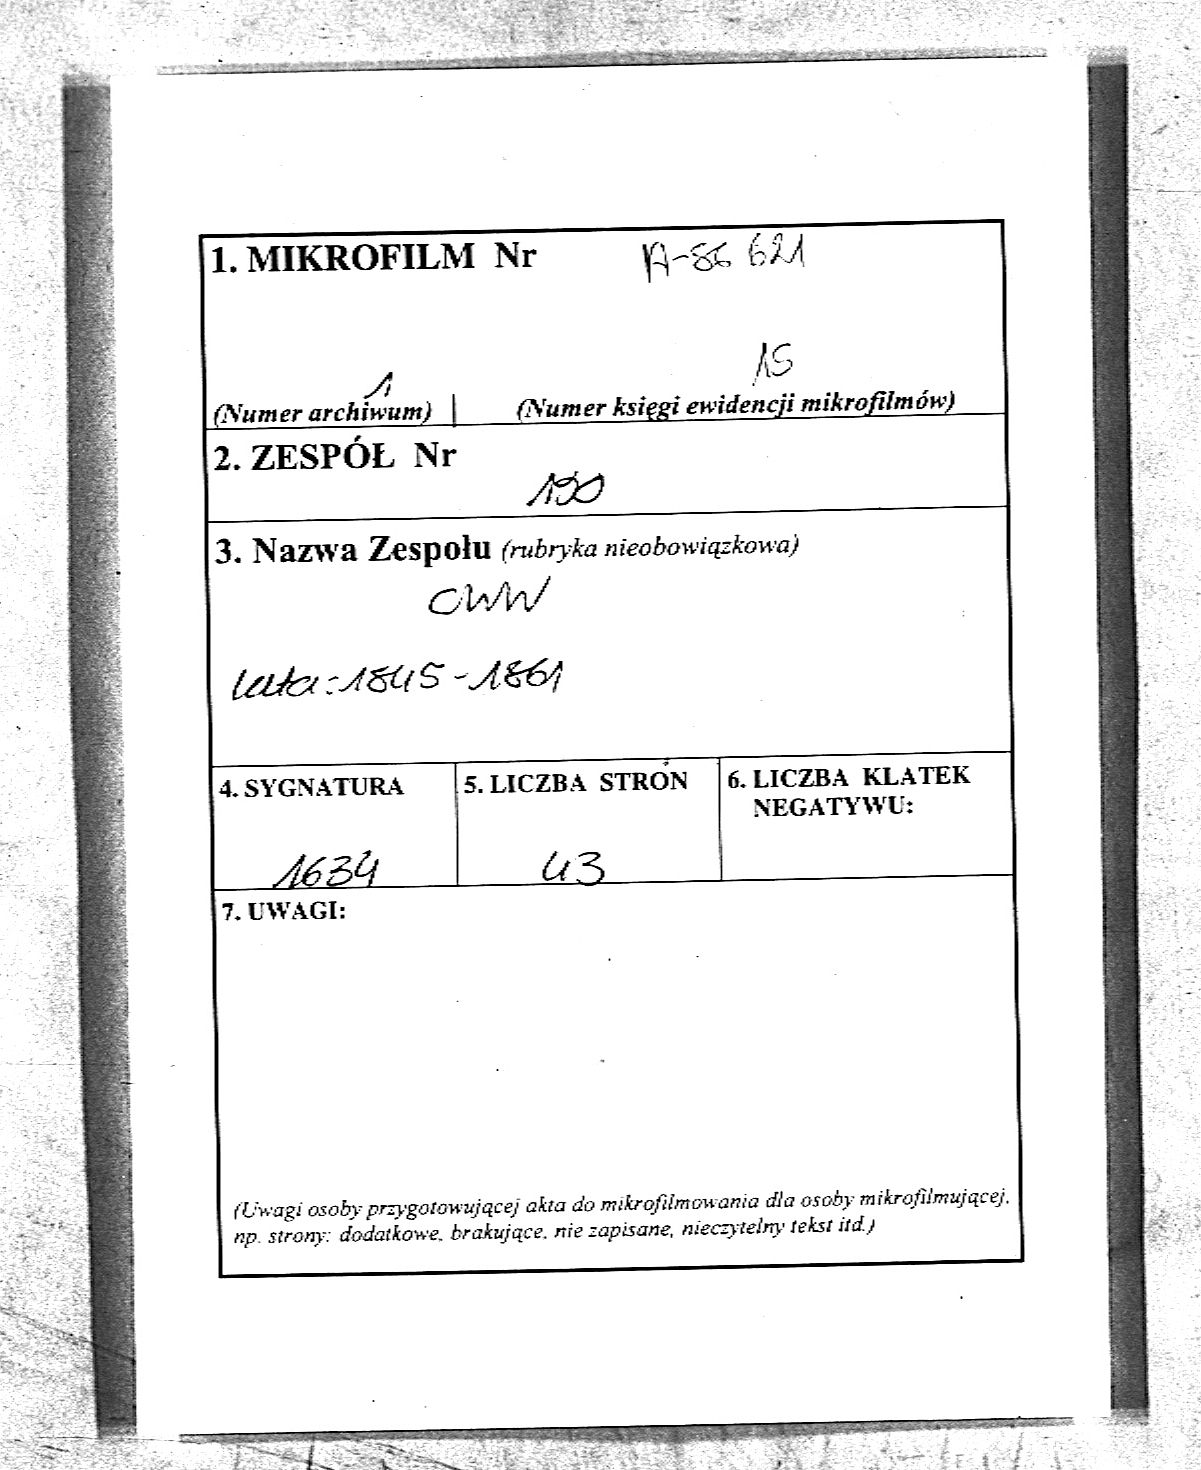 1. MIKROFILM Nr A-86 621
1 15
(Numer archiwum) | (Numer księgi ewidencji mikrofilmów)
2. ZESPÓŁ Nr
190
3. Nazwa Zespołu (rubryka nieobowiązkowa)
CWW
lata: 1845-1861
4. SYGNATURA 5. LICZBA STRON 6. LICZBA KLATEK
NEGATYWU:
1634 43
7. UWAGI:
(Uwagi osoby przygotowującej akta do mikrofilmowania dla osoby mikrofilmującej,
np. strony: dodatkowe, brakujące, nie zapisane, nieczytelny tekst itd.)